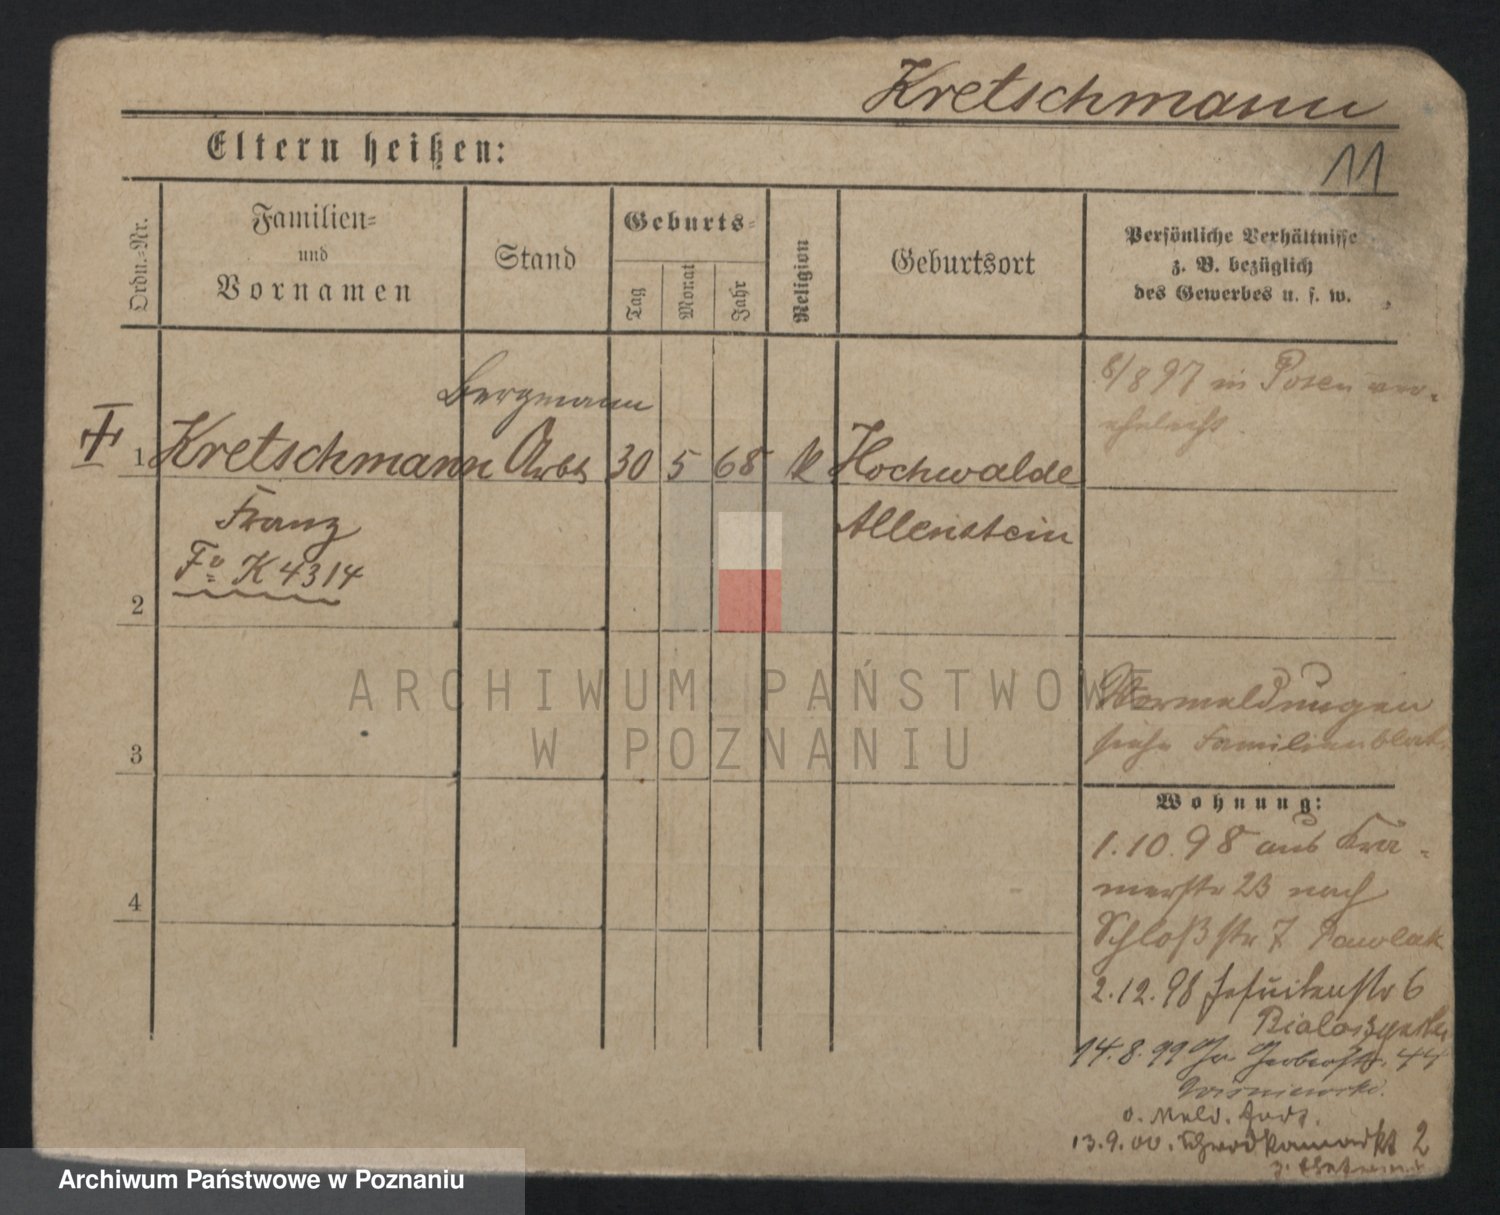 Kretschmann
Eltern heißen:
11
Ordn.-Nr.
Familien-
und
Vornamen
Stand
Geburts-
Tag
Monat
Jahr
Religion
Geburtsort
Persönliche Verhältnisse
z. B. bezüglich
des Gewerbes u. s. w.
8/8 97 in Posen ver-
ehelicht
Bergmann
1 Kretschmann Arb 30 5 68 k Hochwalde
Franz Allenstein
F° K 4314
2
3
4
Abermeldungen
siehe Familienblat
Wohnung:
1.10.98 aus Krä-
merstr 23 nach
Schloßstr 7 Pawlak
2.12.98 Jesuitenstr 6
14.8.99 Gr. Gerberstr. 44
o. Meld.
13.9.00. 2
ARCHIWUM PAŃSTWOWE
W POZNANIU
Archiwum Państwowe w Poznaniu